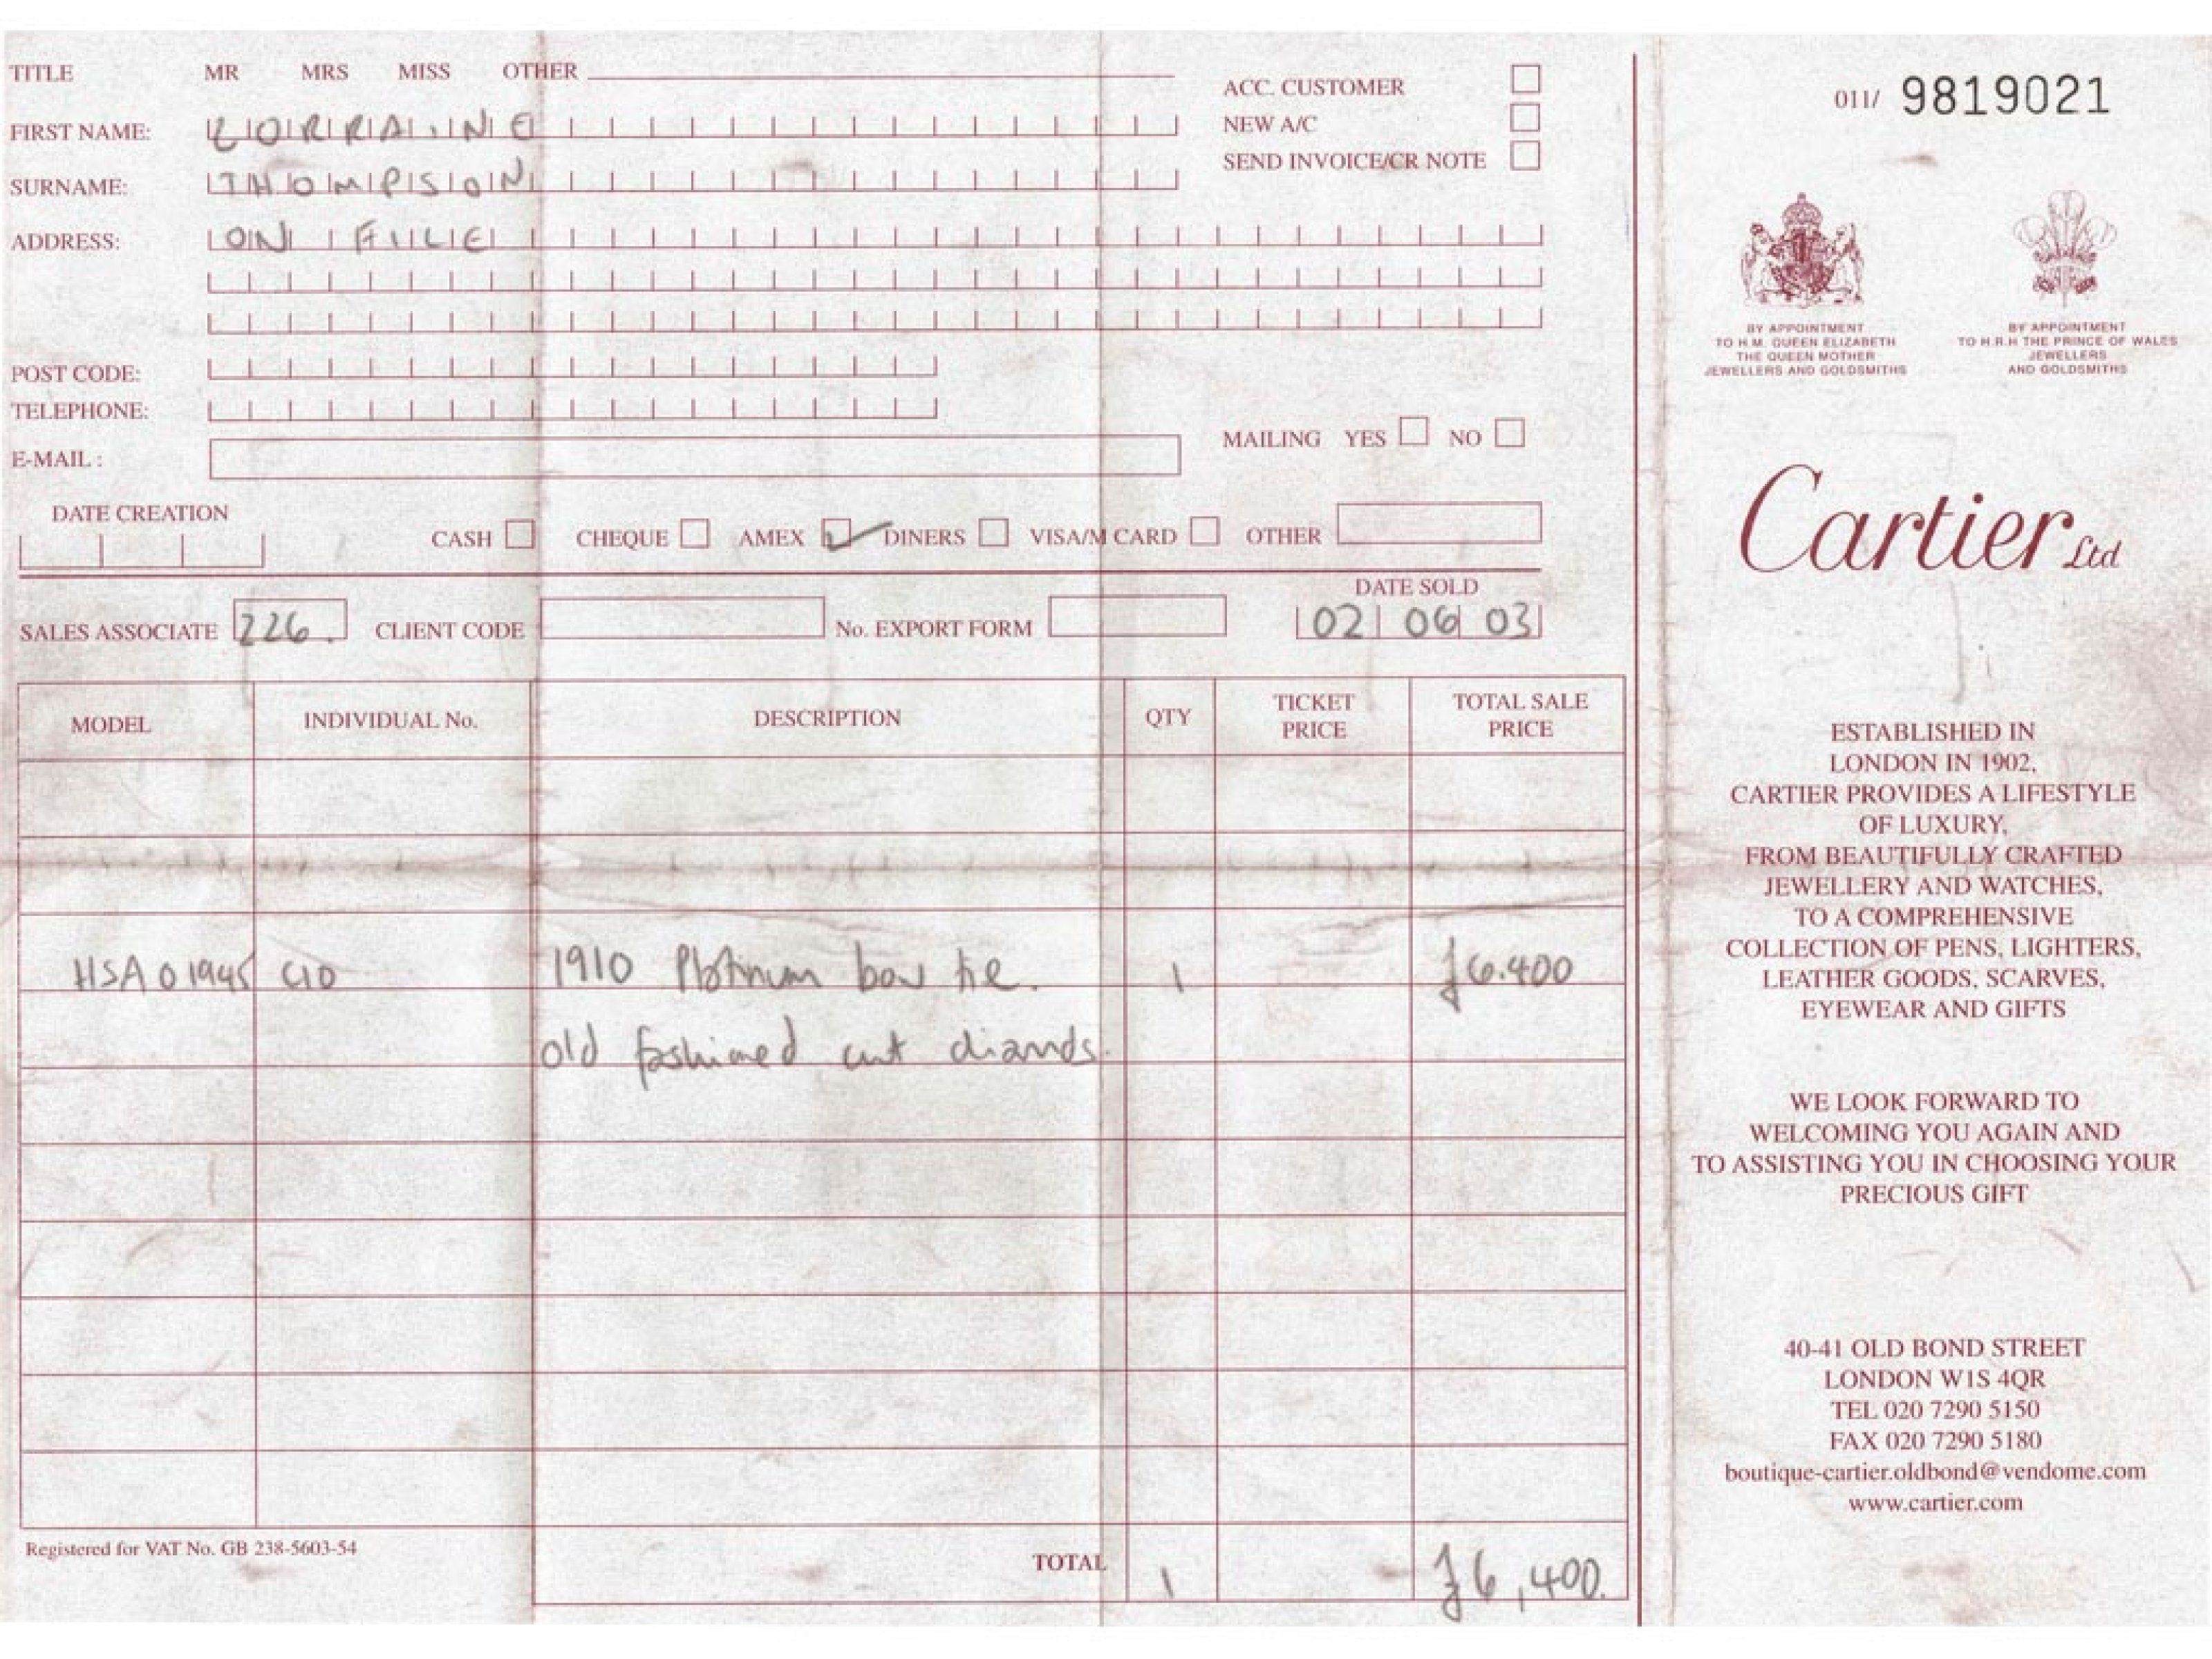 TITLE MR MRS MISS OTHER
FIRST NAME: LORRAINE
SURNAME: THOMPSON
ADDRESS: ON FILE
POST CODE:
TELEPHONE:
E-MAIL :
ACC. CUSTOMER
NEW A/C
SEND INVOICE/CR NOTE
MAILING YES NO
DATE CREATION
CASH CHEQUE AMEX DINERS VISA/M CARD OTHER
DATE SOLD
SALES ASSOCIATE 226. CLIENT CODE No. EXPORT FORM 02 06 03
MODEL INDIVIDUAL No. DESCRIPTION QTY TICKET PRICE TOTAL SALE PRICE
HSA01945 1910 Platinum bow tie. 1 £6.400
old fashioned cut diamds.
Registered for VAT No. GB 238-5603-54
TOTAL 1 £6,400.
011/ 9819021
BY APPOINTMENT
TO H.M. QUEEN ELIZABETH
THE QUEEN MOTHER
JEWELLERS AND GOLDSMITHS
BY APPOINTMENT
TO H.R.H THE PRINCE OF WALES
JEWELLERS
AND GOLDSMITHS
Cartier Ltd
ESTABLISHED IN
LONDON IN 1902,
CARTIER PROVIDES A LIFESTYLE
OF LUXURY,
FROM BEAUTIFULLY CRAFTED
JEWELLERY AND WATCHES,
TO A COMPREHENSIVE
COLLECTION OF PENS, LIGHTERS,
LEATHER GOODS, SCARVES,
EYEWEAR AND GIFTS
WE LOOK FORWARD TO
WELCOMING YOU AGAIN AND
TO ASSISTING YOU IN CHOOSING YOUR
PRECIOUS GIFT
40-41 OLD BOND STREET
LONDON W1S 4QR
TEL 020 7290 5150
FAX 020 7290 5180
boutique-cartier.oldbond@vendome.com
www.cartier.com